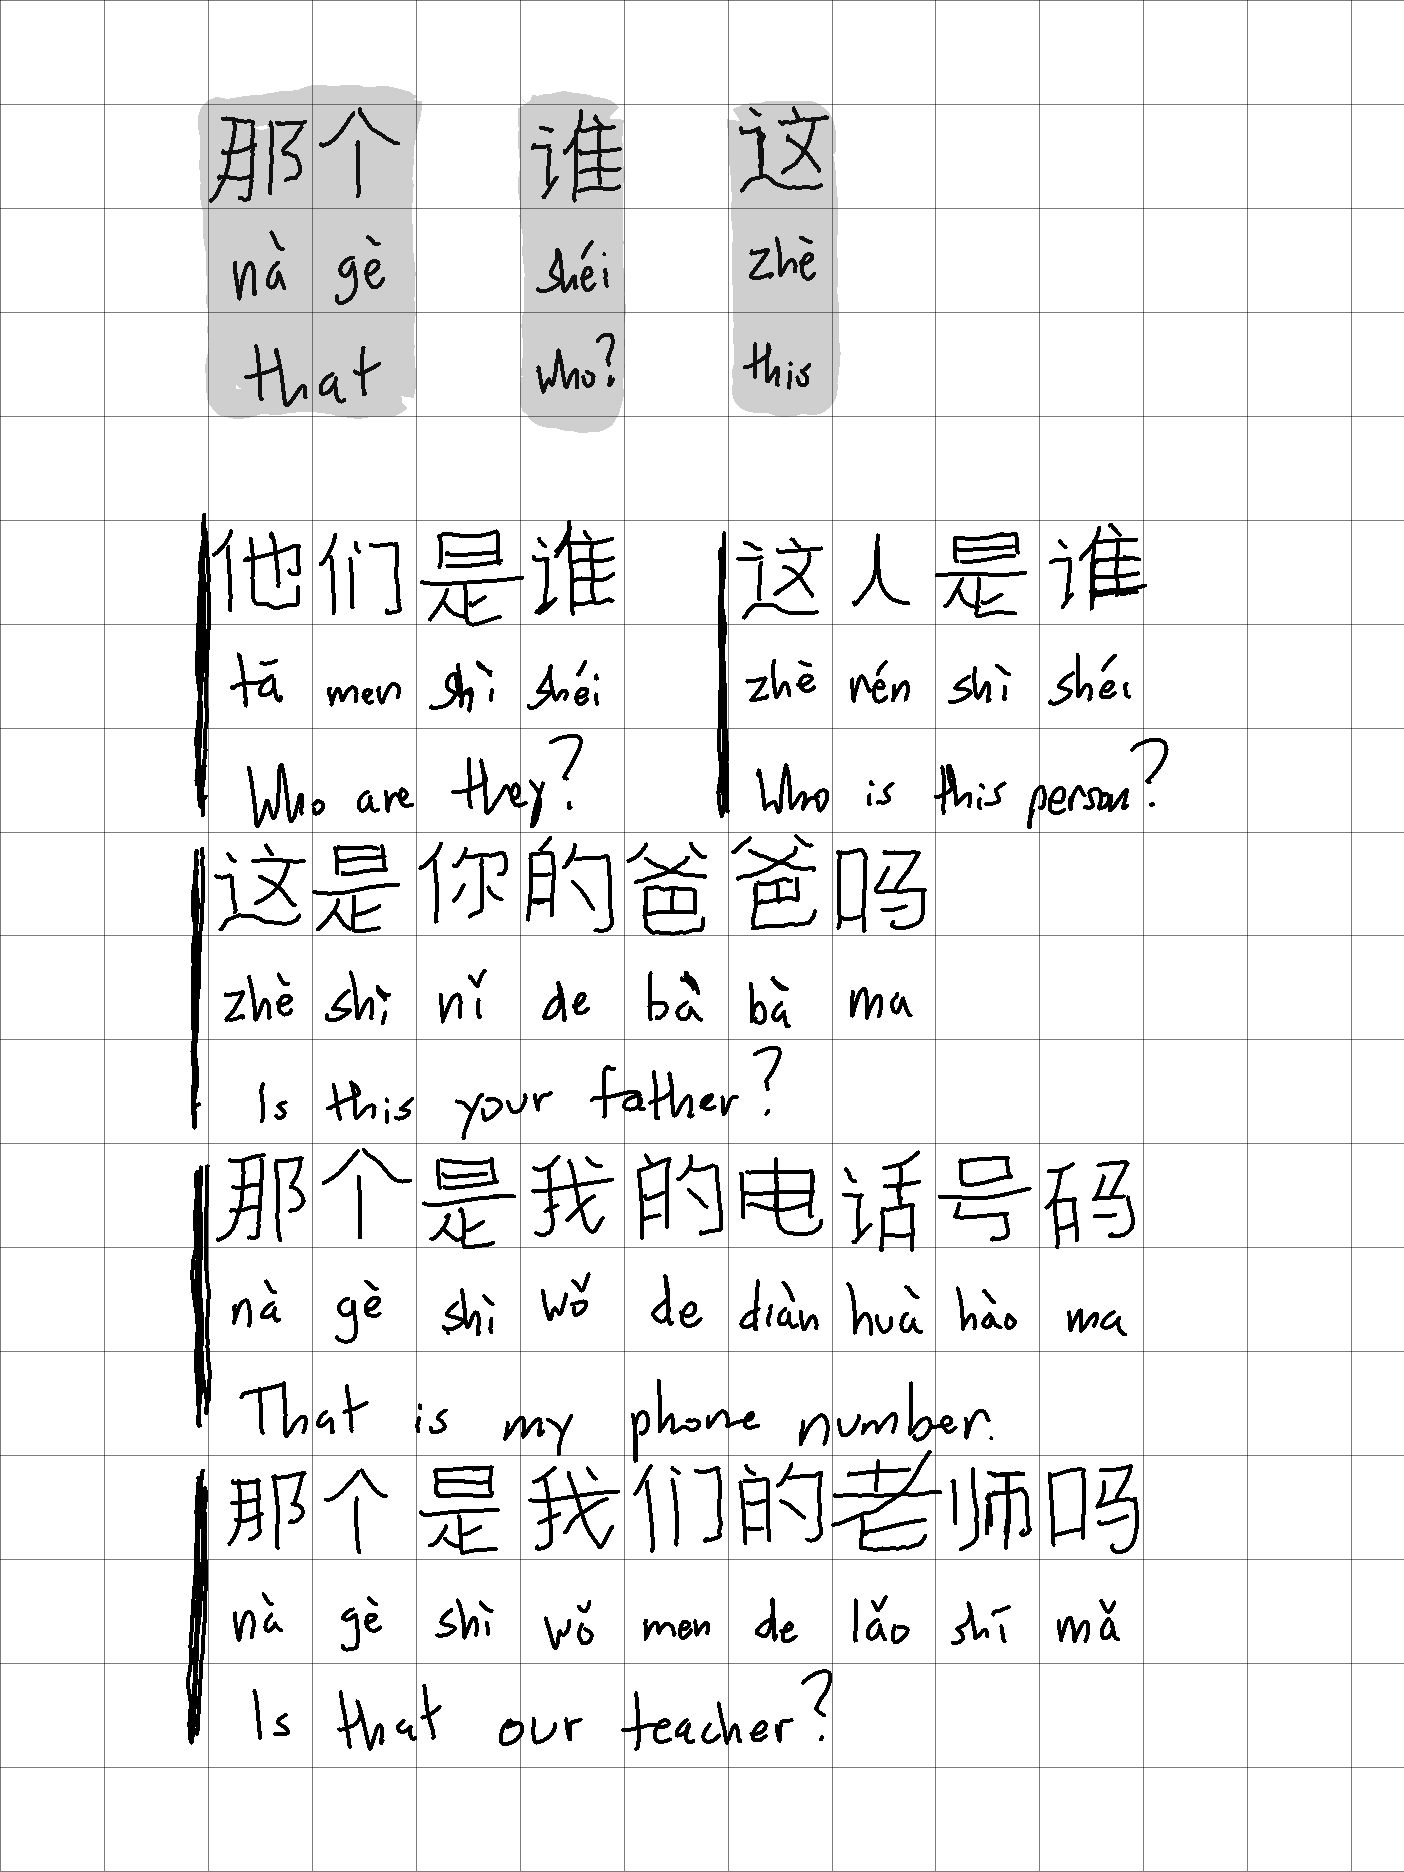 那个 谁 这
nà gè shéi zhè
that who? this
他们是谁 这人是谁
tā men shì shéi zhè rén shì shéi
Who are they? Who is this person?
这是你的爸爸吗
zhè shì nǐ de bà bà ma
Is this your father?
那个是我的电话号码
nà gè shì wǒ de diàn huà hào ma
That is my phone number.
那个是我们的老师吗
nà gè shì wǒ men de lǎo shī mǎ
Is that our teacher?